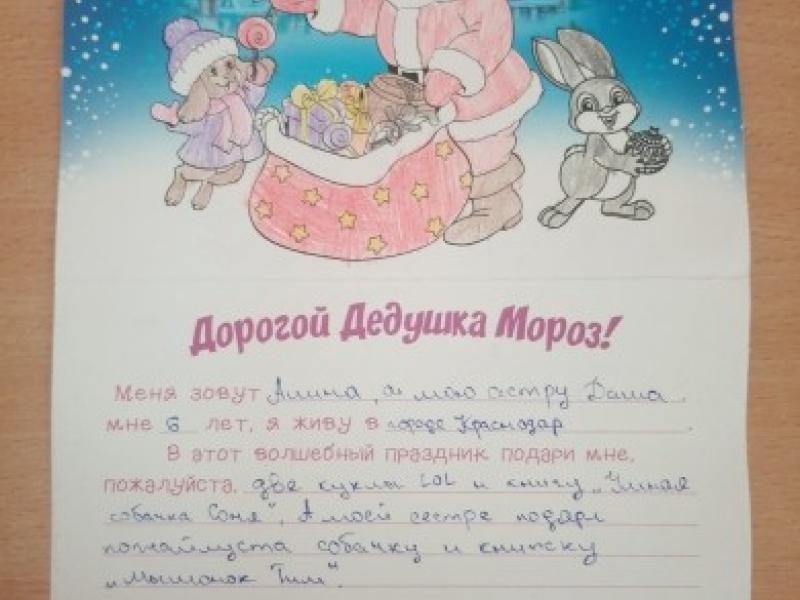 Дорогой Дедушка Мороз!
Меня зовут Алина, а мою сестру Даша.
мне 6 лет, я живу в городе Краснодар.
В этот волшебный праздник подари мне,
пожалуйста, две куклы LOL и книгу „Умная
собачка Соня". А моей сестре подари
пожайлуста собачку и книжку
„Мышонок Тим".